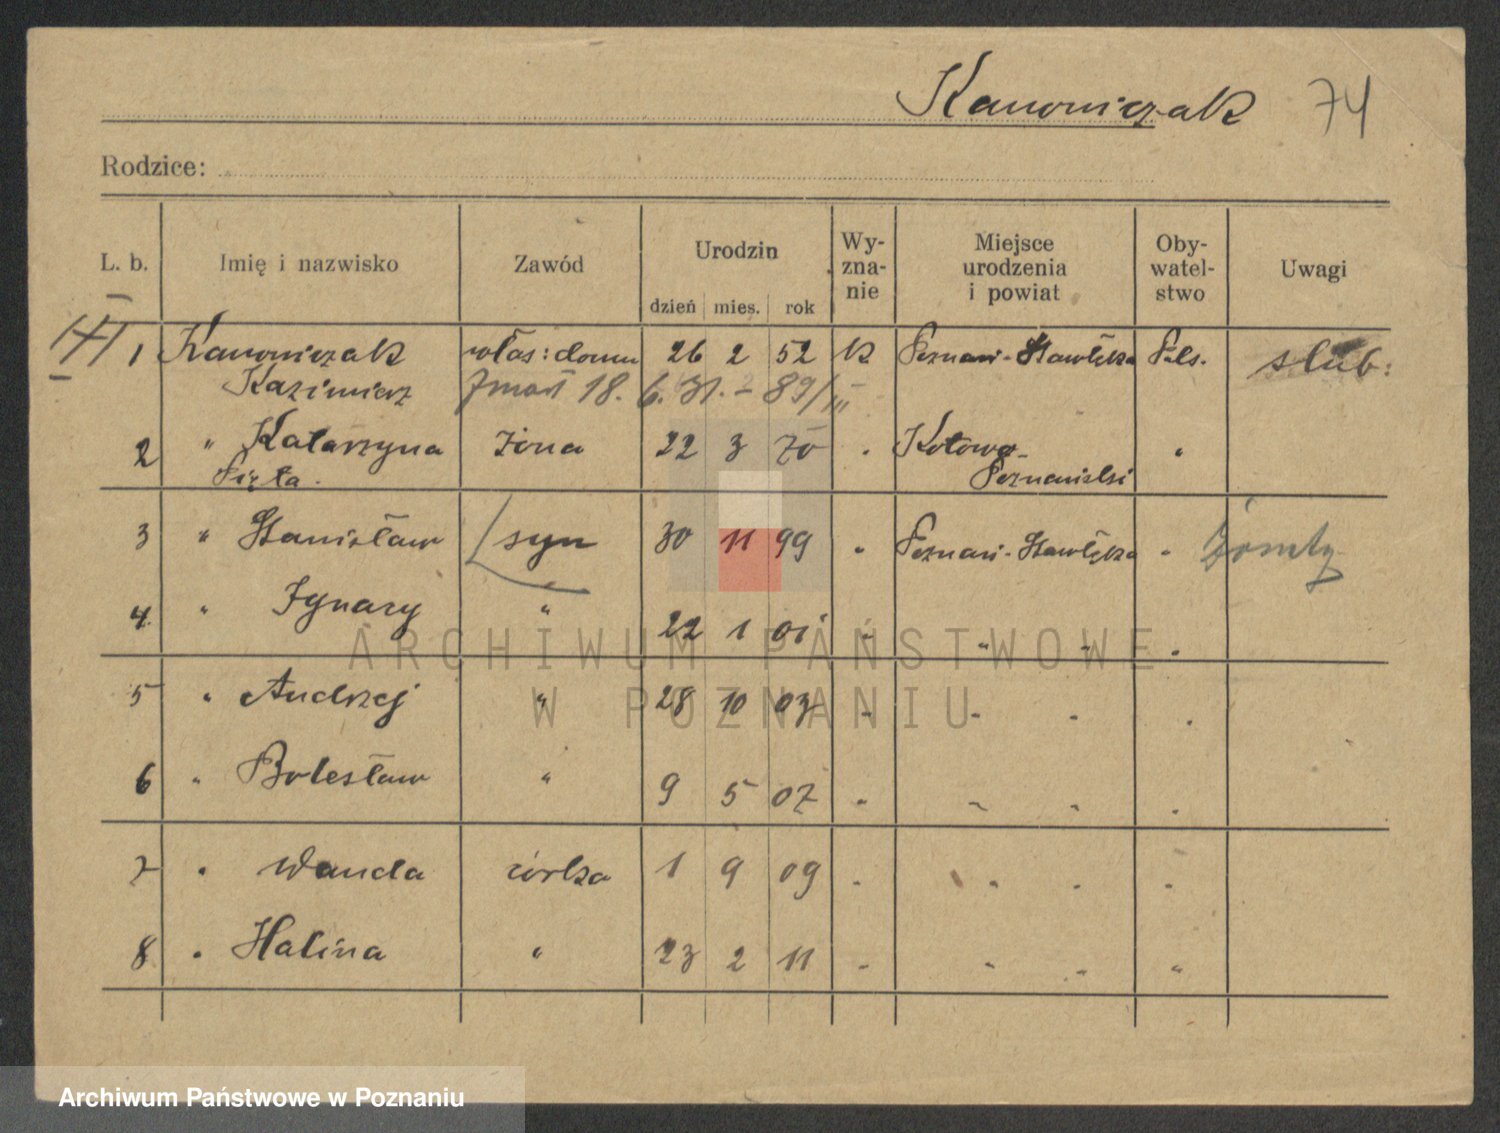 Kanowiczak 74
Rodzice:
L. b. Imię i nazwisko Zawód Urodzin Wy- zna- nie Miejsce urodzenia i powiat Oby- watel- stwo Uwagi
dzień mies. rok
1 Kanowiczak właś: domu 26 2 52 k Poznań-Ławica Pols. ślub:
Kazimierz zmarł 18. 6. 31. - 89/III
2 " Katarzyna żona 22 3 70 " Kotowo- "
Pięta. Poznański
3 " Stanisław syn 30 11 99 " Poznań-Ławica "
4. " Ignacy " 22 1 01 " " " "
5 " Andrzej " 28 10 03 " " " "
6 " Bolesław " 9 5 07 " " " "
7 " Wanda córka 1 9 09 " " " "
8 " Halina " 23 2 11 " " " "
ARCHIWUM PAŃSTWOWE
W POZNANIU
Archiwum Państwowe w Poznaniu